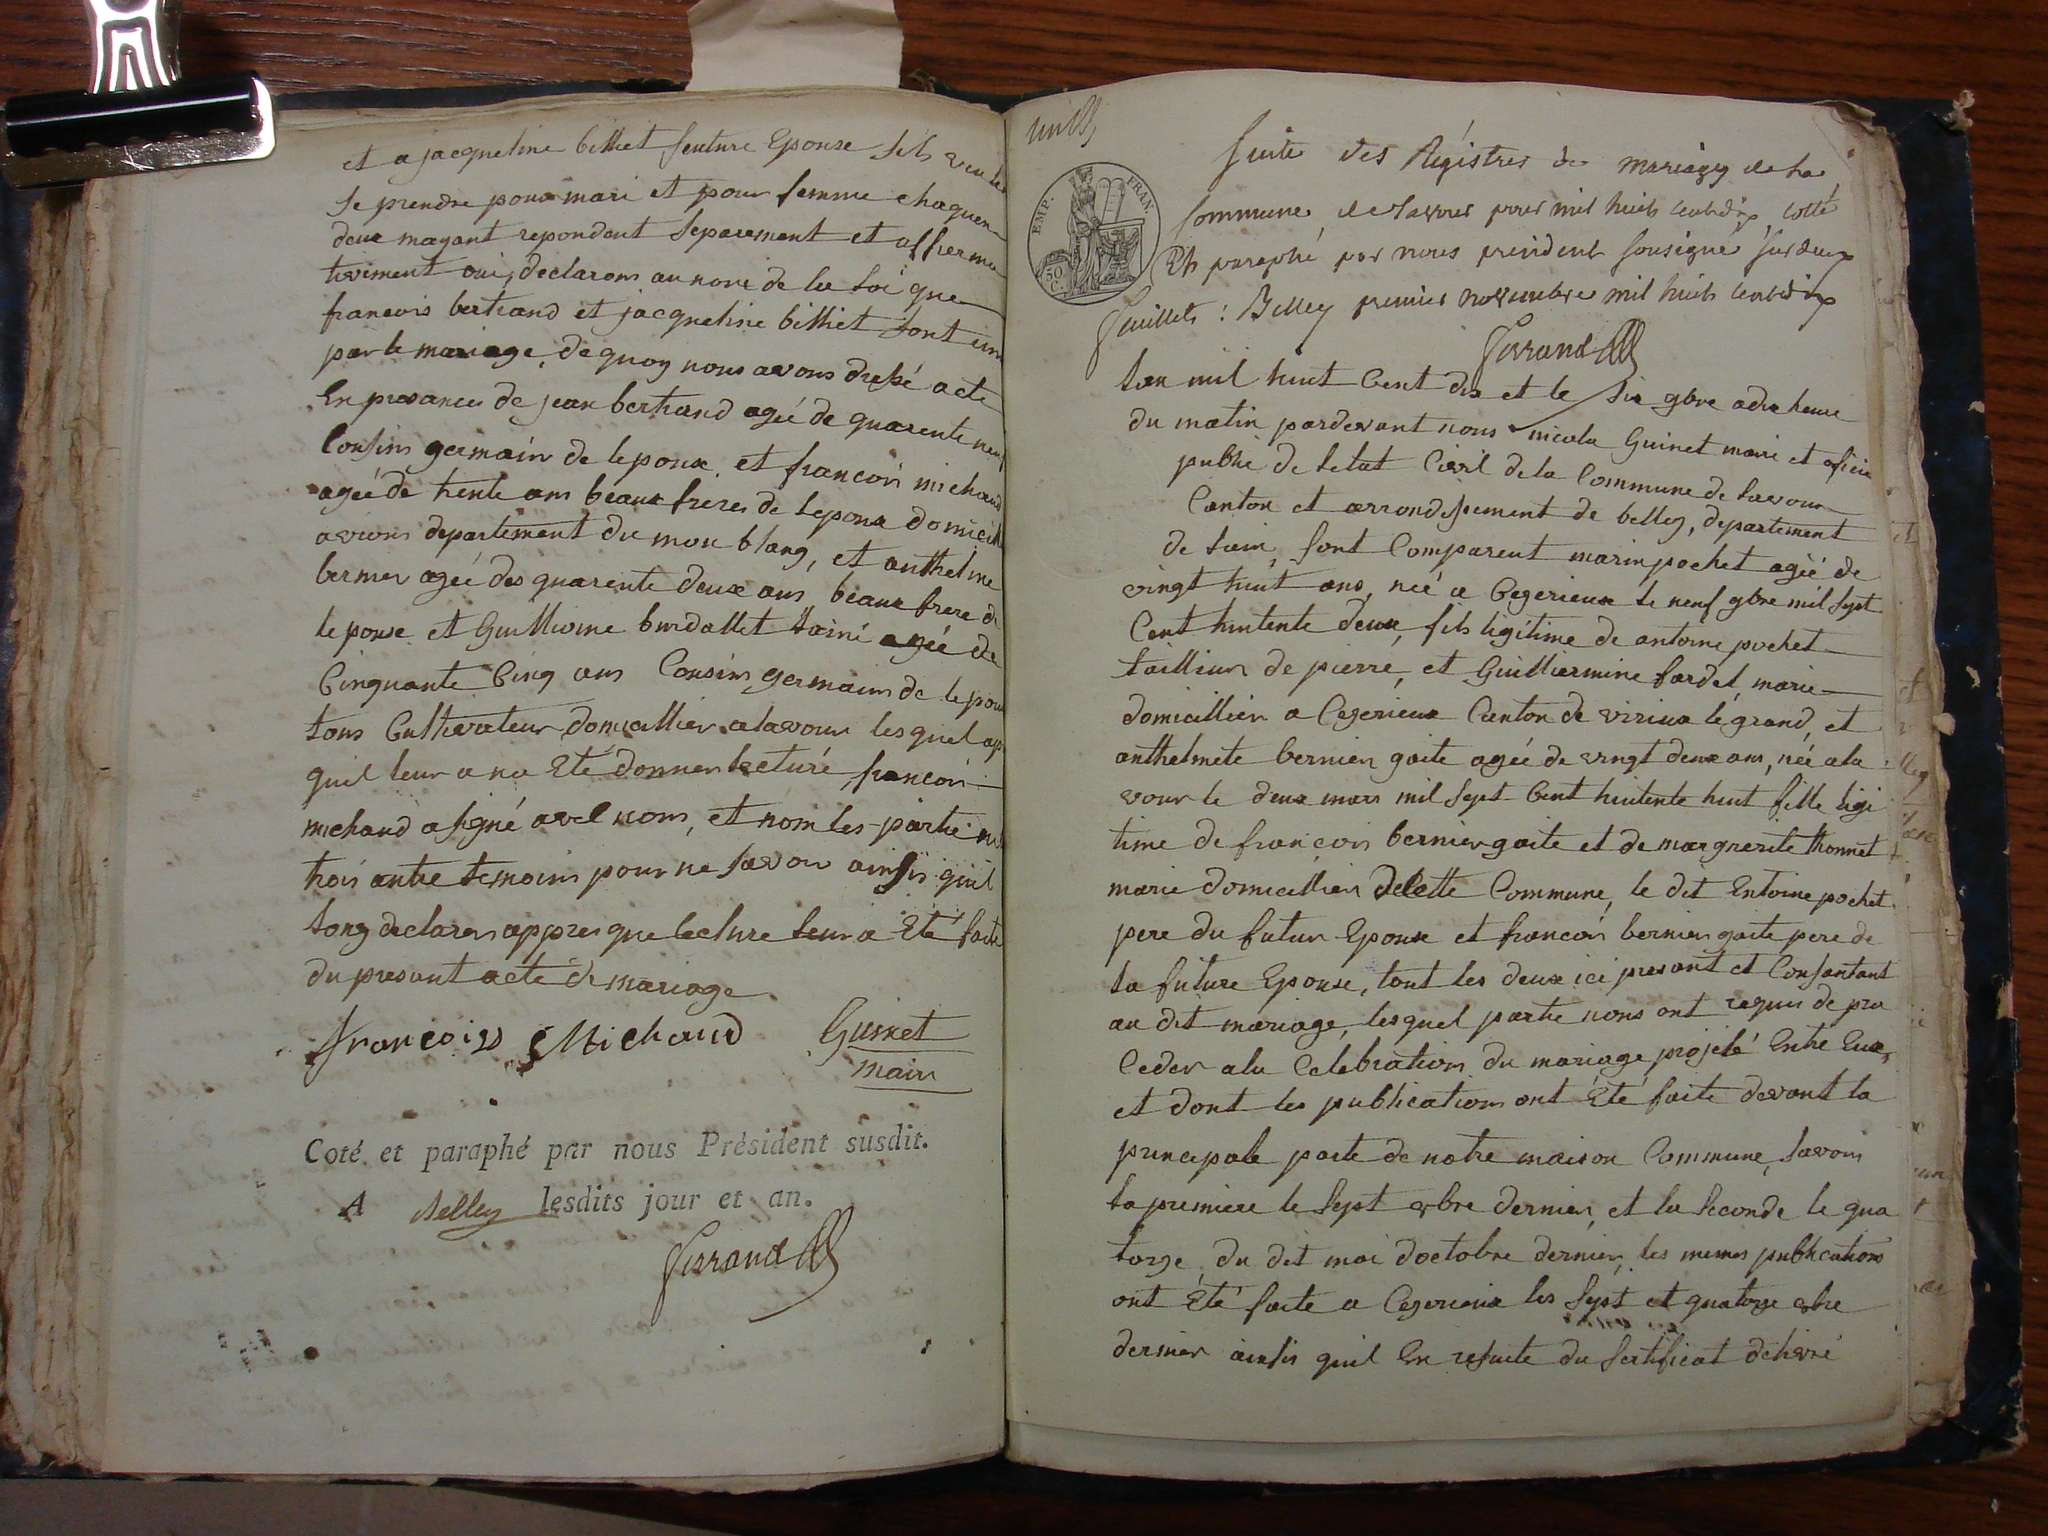 et a jacqueline billiet feuture Epouse sils veulle
se prendre pour mari et pour femme chaquen
deux mayant repondeut separement et affierma
tiviment oui, declarons au nom de la Loi que
francois bertrand et jacqueline billiet sont uni
par le mariage, de quoy nous avons dressé acte
En presances de jean bertrand agée de quarente neuf
Cousin germain de lepoux, et francois michaud
agée de trente ans beaux freres de lepoux domicili
a vions departement du mon blang, et anthelme
bernier agée des quarente deux ans, beaux frere de
lepouse et Guilliaume burdallet lainé agée de
Cinquante Cinq ans Cousin germains de lepou
tous Cultivateur domicillier alavour lesquel ap
quil leur a na Eté donner lecturé, francois
michaud a signé avec nous, et nom les partie ni
trois autre temoins pour ne savoir ainsis quil
long declarer appres que lecture leur a Eté faite
du presant acte de mariage
François Michaud Guinet
mair
Coté et paraphé par nous Président susdit.
A Belley lesdits jour et an.
Ferrand
EMP. FRAN.
50 C.
Suite des Régistres de mariages de la
Commune de Lavour pour mil huit cent dix, cotté
Et paraphé par nous président sousigné sur deux
feuillets : Belley premier novembre mil huit cent dix
Ferrand
Lan mil huit Cent dix et le six 9bre a dix heure
du matin pardevant nous nicola Guinet maire et oficie
public de letat Civil de la Commune de Lavour
Canton et arrondissement de belley, departement
de Lain, sont Comparent marin pochet agée de
vingt huit ans, née a Cegerieux le neuf 9bre mil sept
Cent huitente deux, fils ligitime de antoine pochet
taillieur de pierre, et Guilliermine fardel, marie
domicillier a Cegerieux Canton de virieux le grand, et
anthelmete bernier goite agée de vingt deux ans, née ala
vour le deux mars mil sept Cent huitente huit fille ligi
time de francois bernier goite et de margrerite thonnet
marie domicillier de Cette Commune, le dit Entoine pochet
pere du futur Epoux et francois bernier goite pere de
la future Epouse, tout les deux ici presant et Consantant
au dit mariage, lesquel partie nous ont requis de pro
Ceder ala Celebration du mariage projeté Entre Eux,
et dont les publication ont Eté faite devant la
principale porte de notre maison Commune, savoir
la premiere le sept 8bre dernier, et la seconde le qua
torze, du dit moi doctobre dernier, les memes publications
ont Eté faite a Cegerieux les sept et quatorze 8bre
dernier ainsis quil En resulte du sertificat delivré